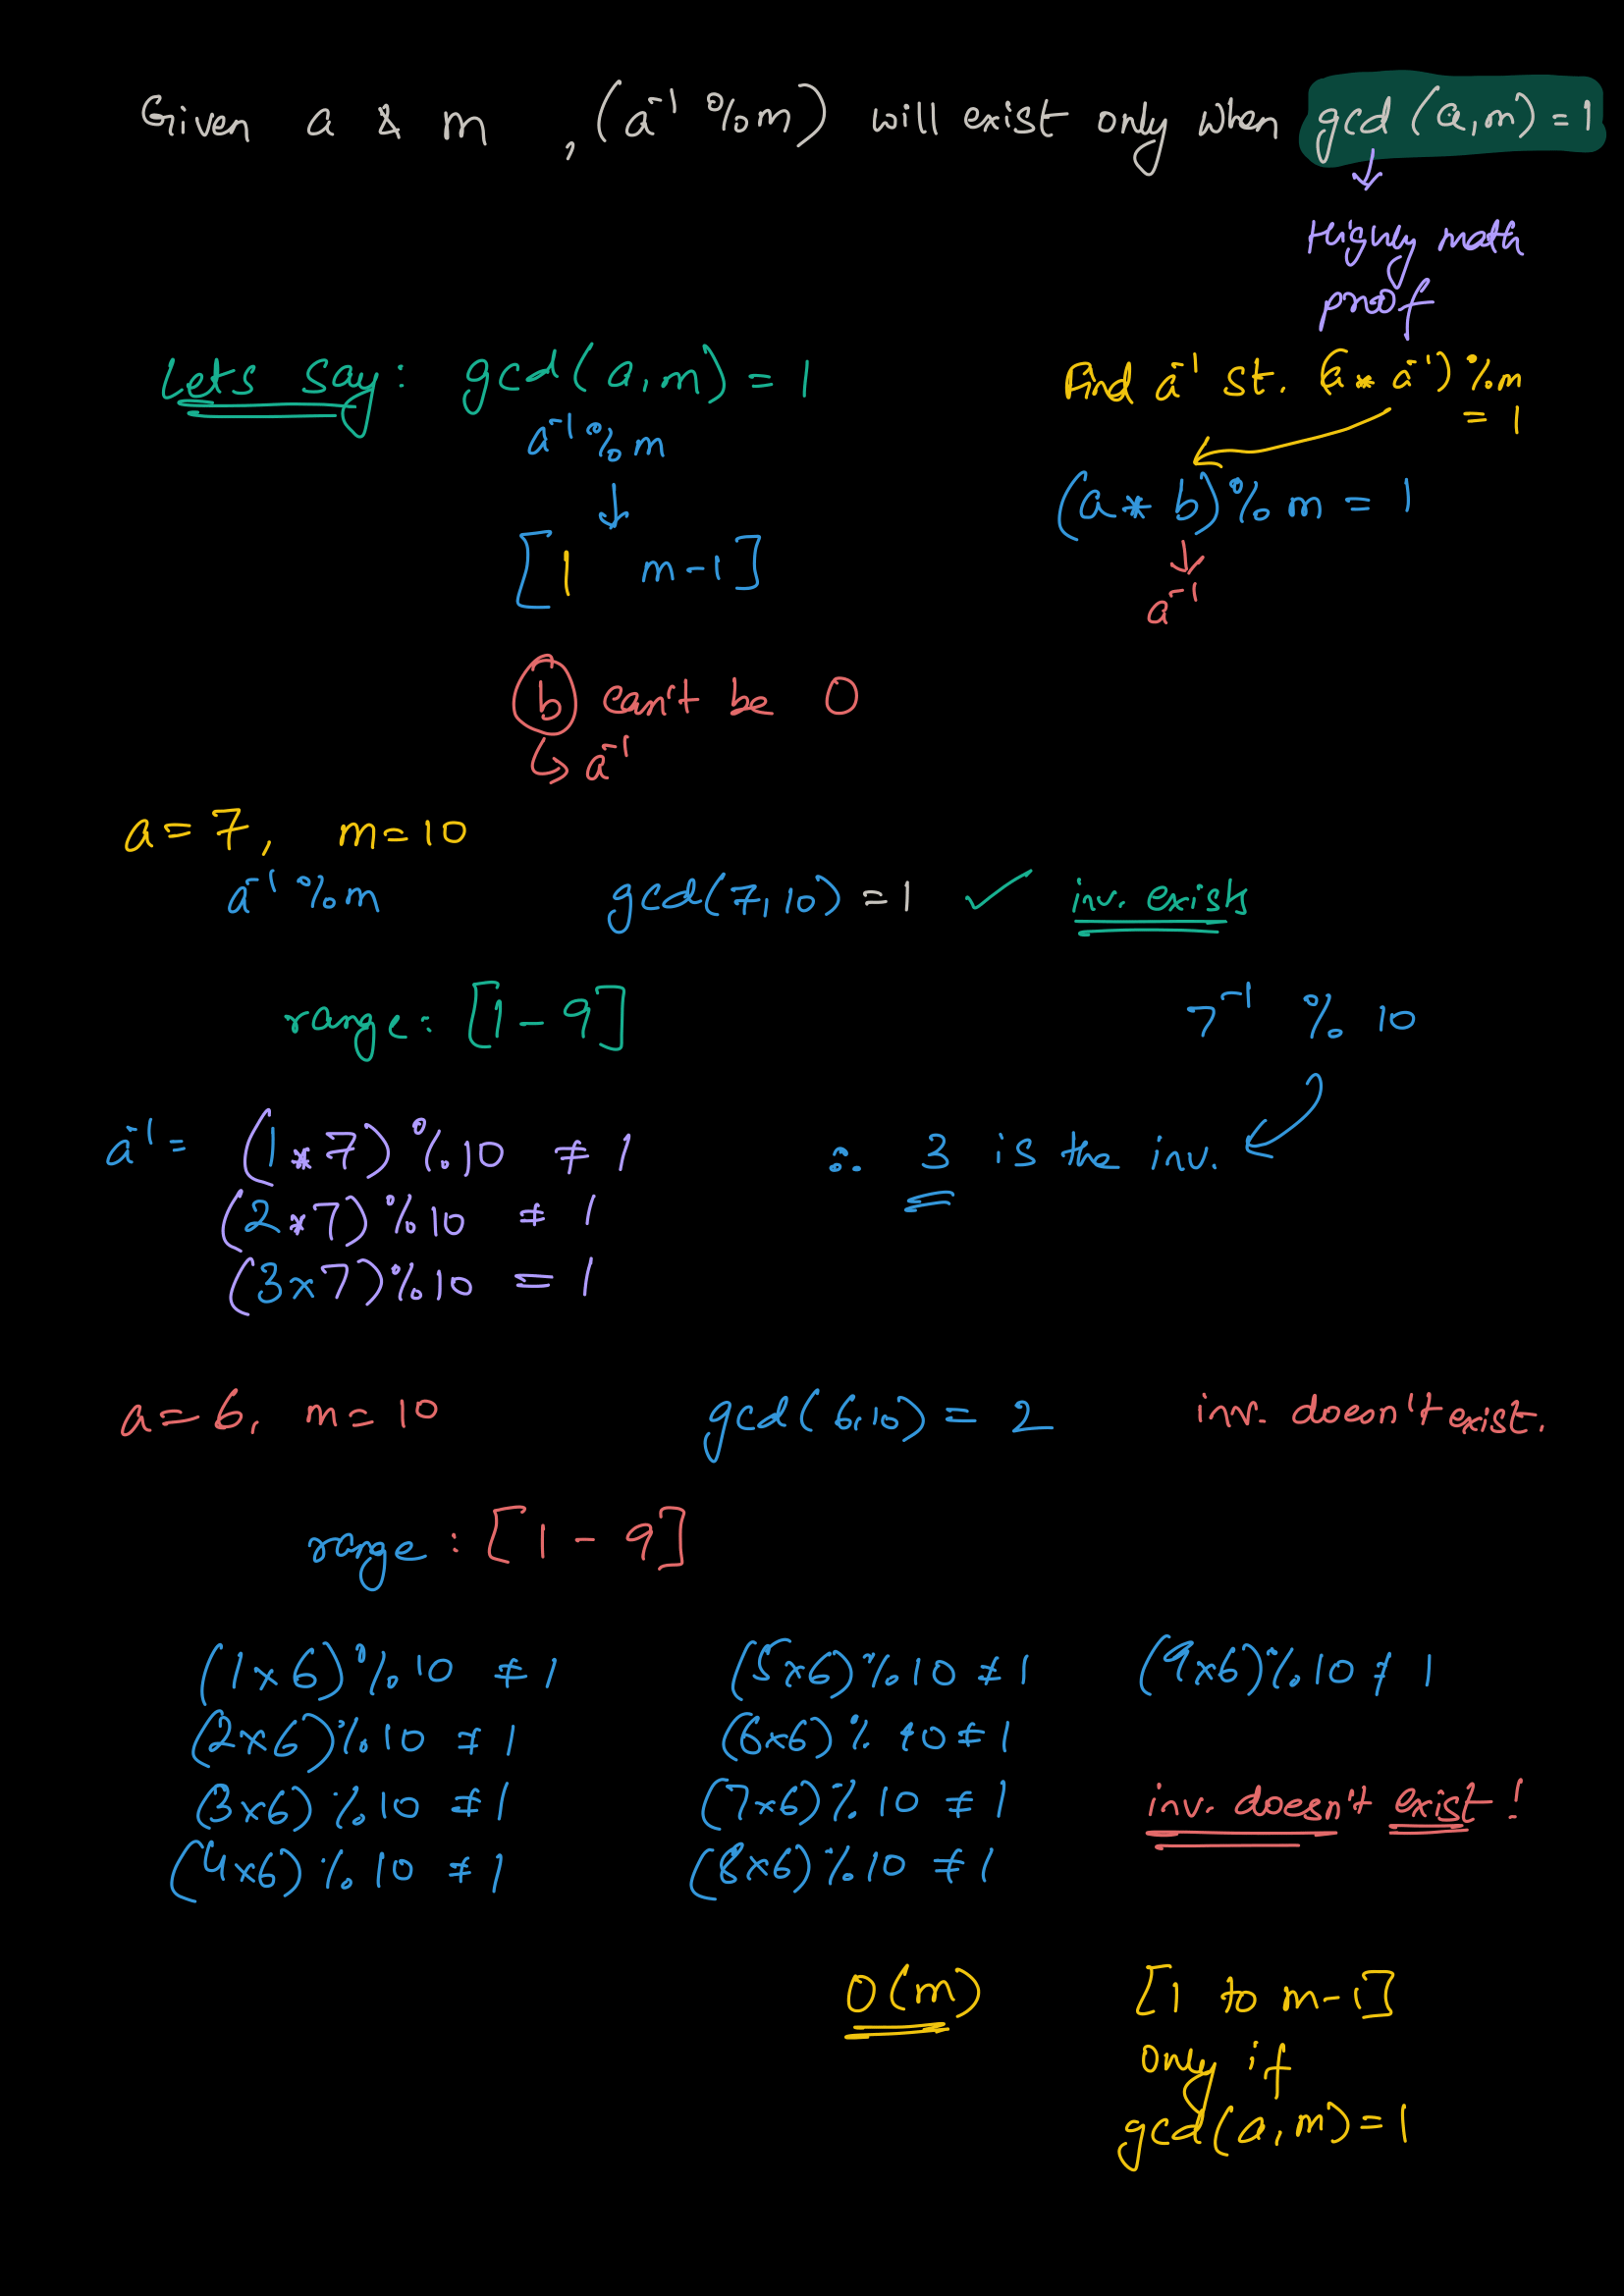 Given a & m , (a⁻¹ % m) will exist only when gcd (a,m) = 1
↓
Highly math
proof
Lets say: gcd(a,m) = 1
a⁻¹ % m
↓
[1 m-1]
Find a⁻¹ st. (a * a⁻¹) % m
= 1
(a * b) % m = 1
↓
a⁻¹
b can't be 0
↳ a⁻¹
a = 7, m = 10
a⁻¹ % m gcd(7,10) = 1 ✓ inv. exists
range: [1 - 9] 7⁻¹ % 10
a⁻¹ = (1 * 7) % 10 ≠ 1 ∴ 3 is the inv.
(2 * 7) % 10 ≠ 1
(3 x 7) % 10 = 1
a = 6, m = 10 gcd(6,10) = 2 inv. doesn't exist.
range : [1 - 9]
(1 x 6) % 10 ≠ 1 (5 x 6) % 10 ≠ 1 (9 x 6) % 10 ≠ 1
(2 x 6) % 10 ≠ 1 (6 x 6) % 10 ≠ 1
(3 x 6) % 10 ≠ 1 (7 x 6) % 10 ≠ 1 inv. doesn't exist !
(4 x 6) % 10 ≠ 1 (8 x 6) % 10 ≠ 1
O(m) [1 to m-1]
only if
gcd(a,m) = 1